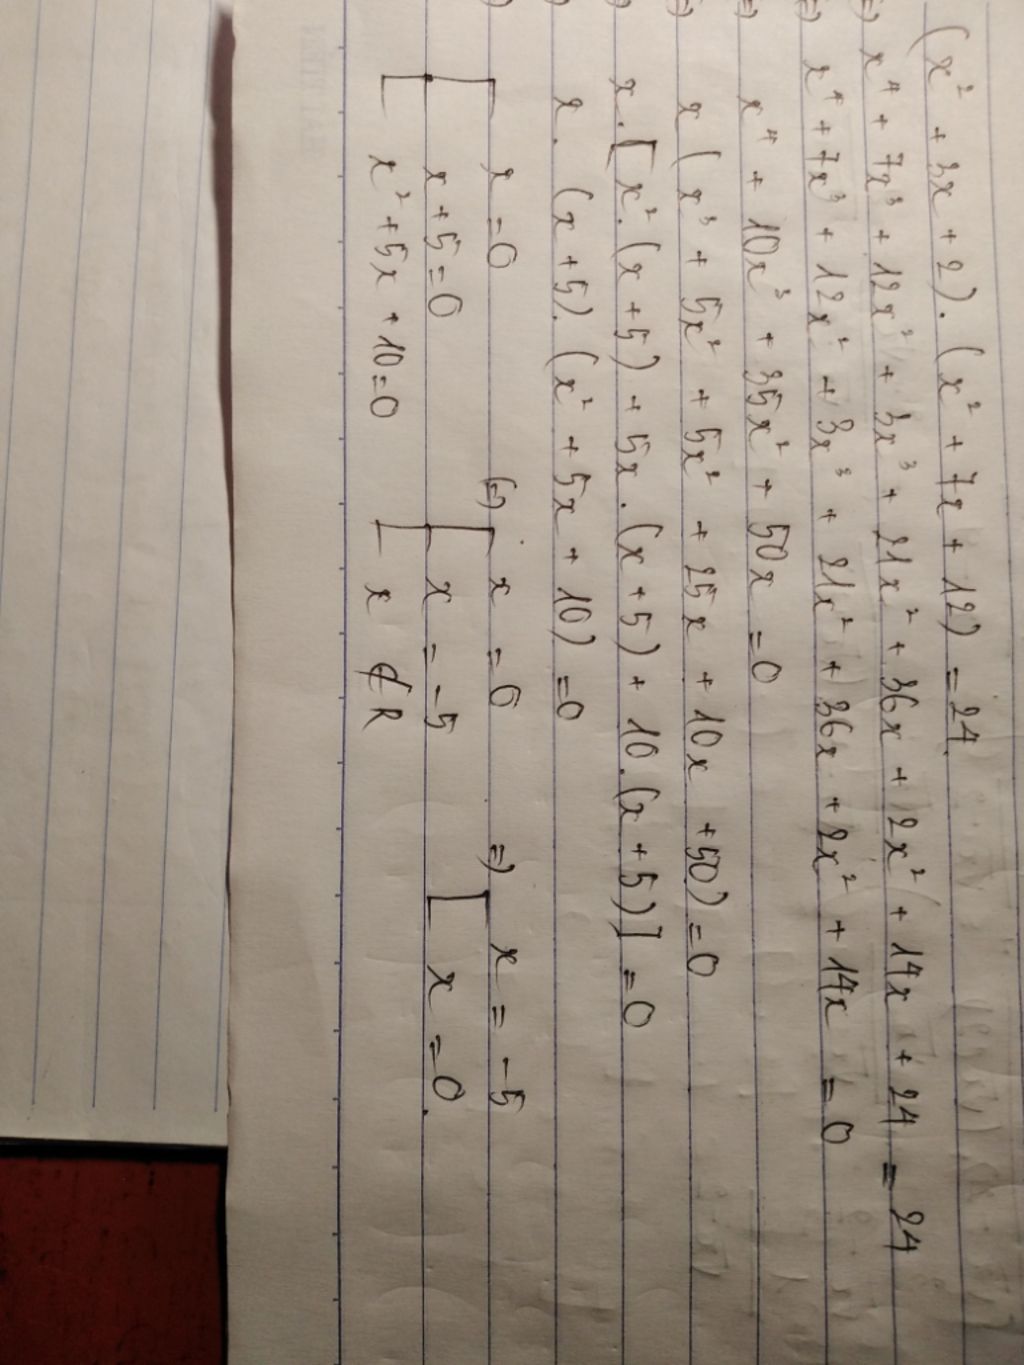 (x² + 3x + 2). (x² + 7x + 12) = 24
⇔) x⁴ + 7x³ + 12x² + 3x³ + 21x² + 36x + 2x² + 14x + 24 = 24
⇔) x⁴ + 7x³ + 12x² + 3x³ + 21x² + 36x + 2x² + 14x = 0
⇔) x⁴ + 10x³ + 35x² + 50x = 0
⇔) x (x³ + 5x² + 5x² + 25x + 10x + 50) = 0
x. [x². (x + 5) + 5x. (x + 5) + 10. (x + 5)] = 0
x. (x + 5). (x² + 5x + 10) = 0
[ x = 0 (=) [ x = 0 =) [ x = -5
x + 5 = 0 x = -5 x = 0.
x² + 5x + 10 = 0 x ∉ R